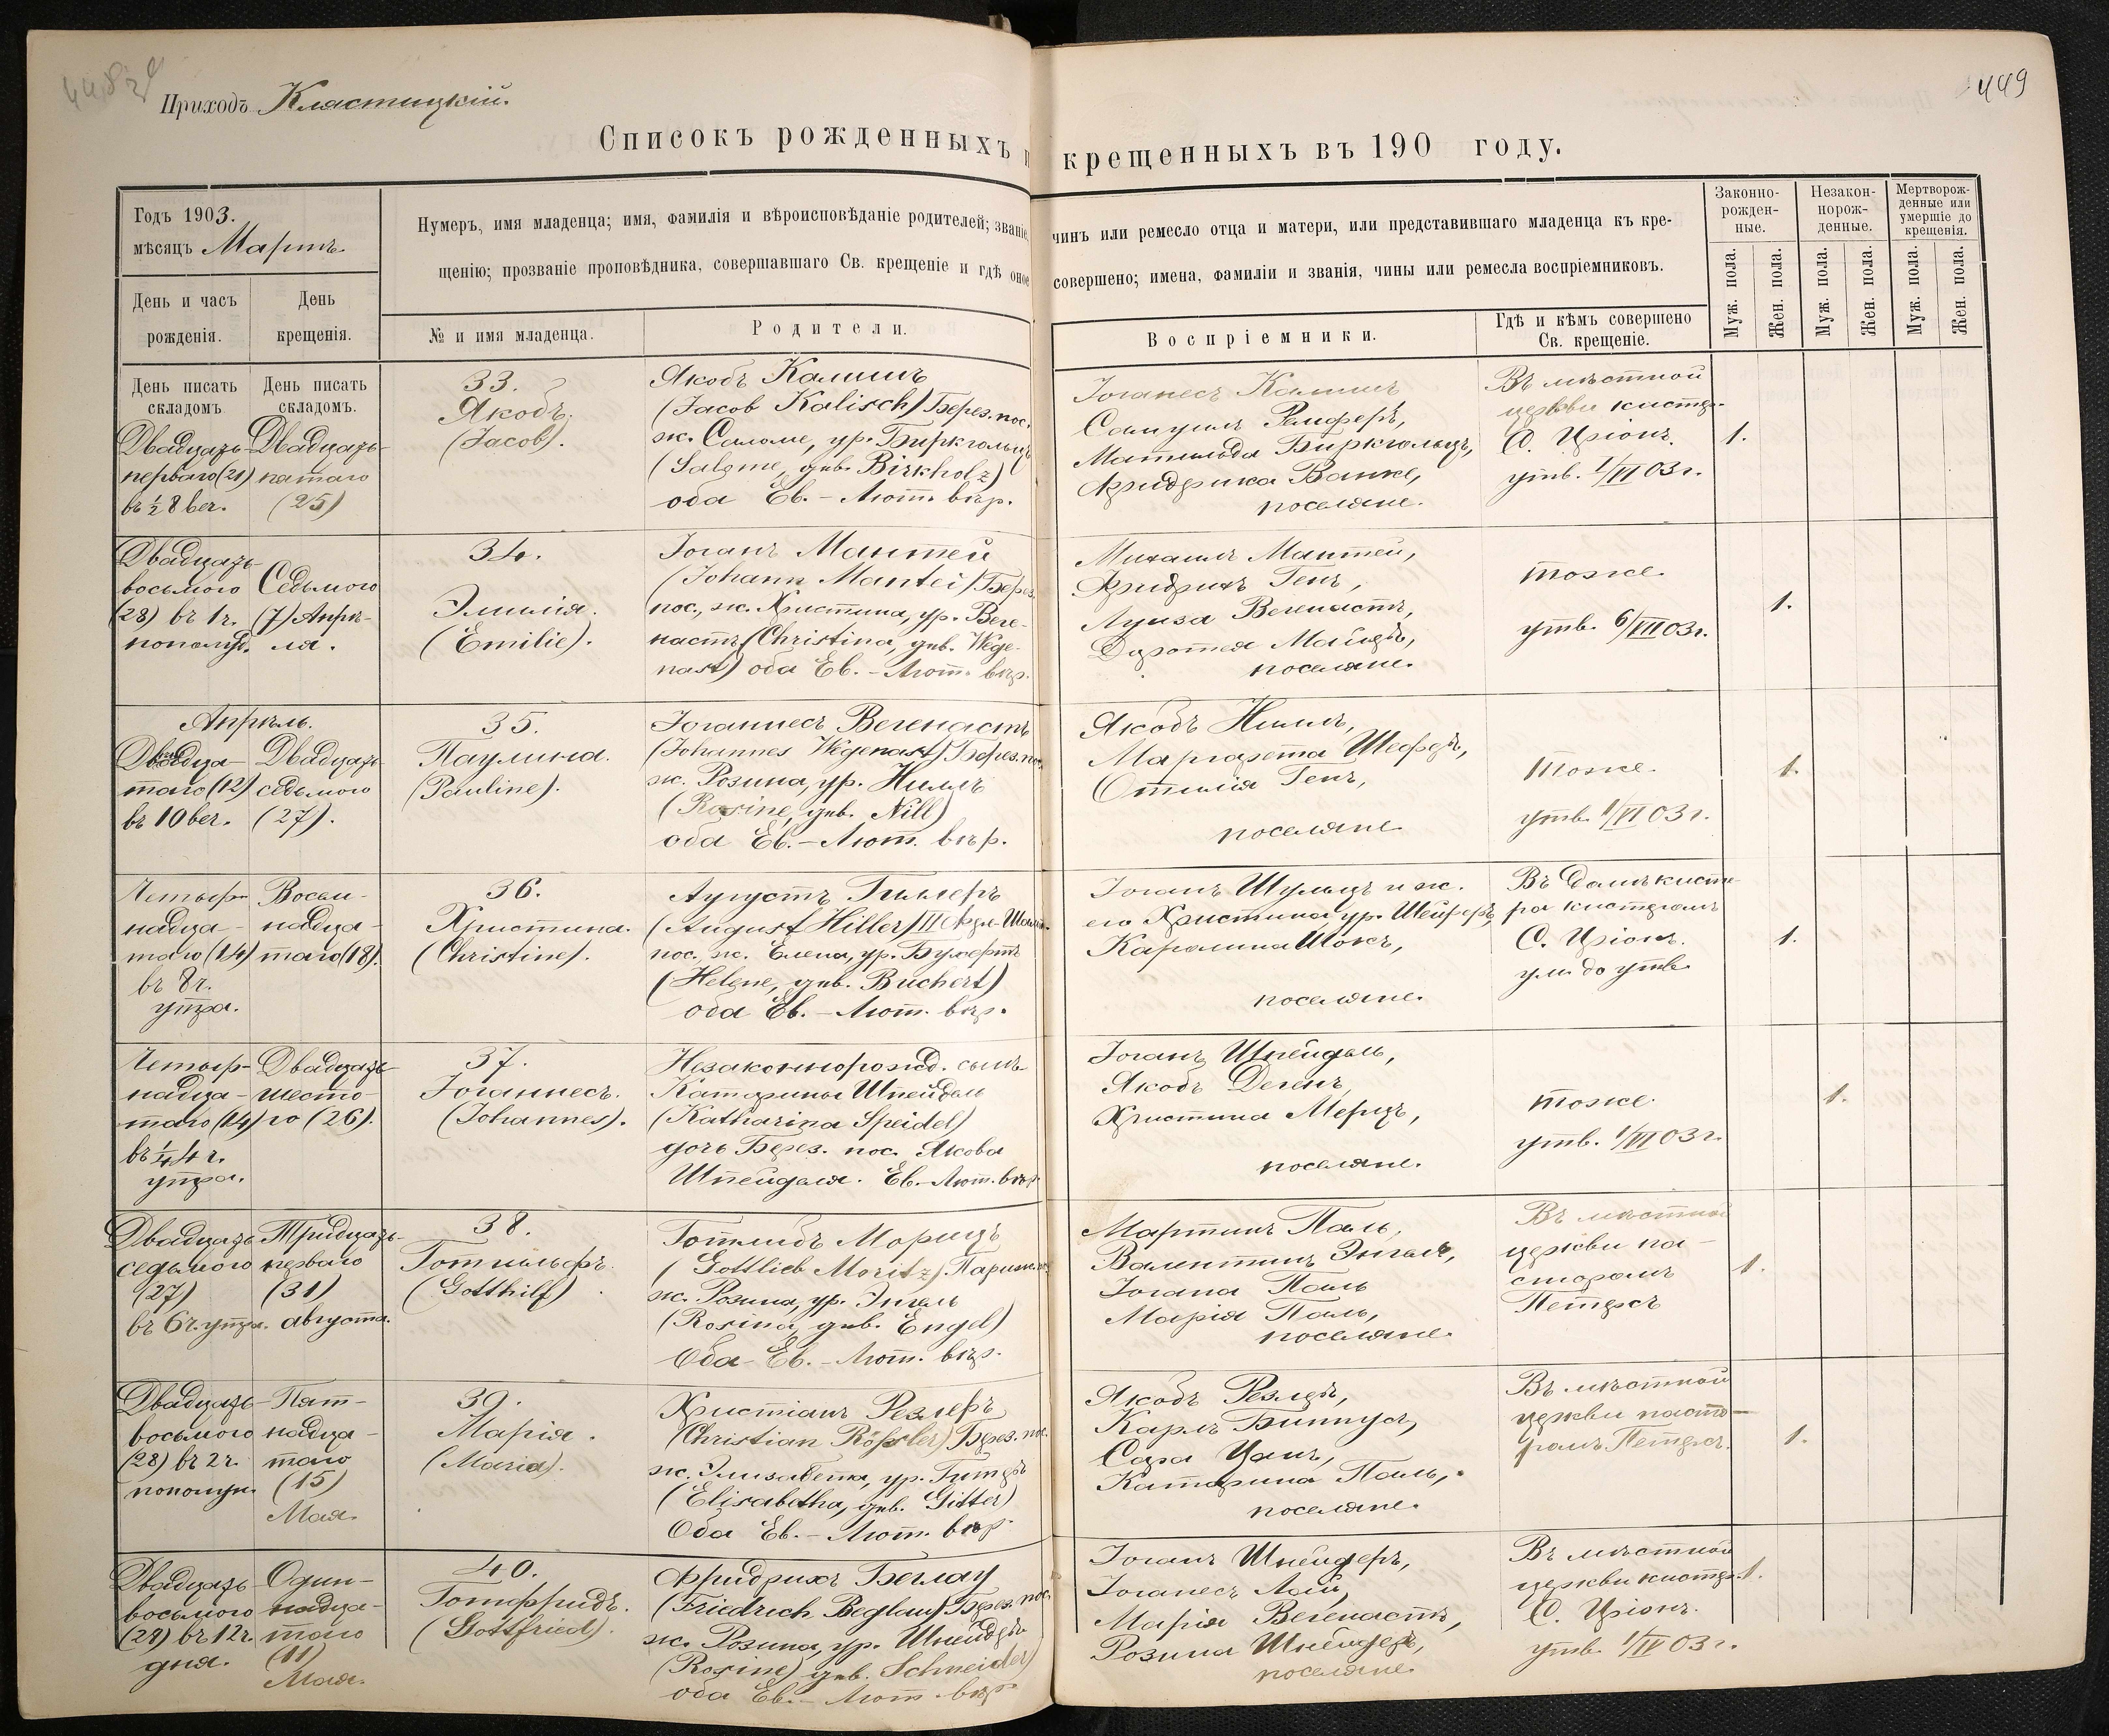 Приходъ Кластицкій.
449
Списокъ рожденныхъ и крещенныхъ въ 190 году.
Годъ 1903.
мѣсяцъ Мартъ.
День и часъ рожденія.
День крещенія.
Нумеръ, имя младенца; имя, фамилія и вѣроисповѣданіе родителей; званіе, чинъ или ремесло отца и матери, или представившаго младенца къ кре-
щенію; прозваніе проповѣдника, совершавшаго Св. крещеніе и гдѣ оное совершено; имена, фамиліи и званія, чины или ремесла воспріемниковъ.
№ и имя младенца.
Родители.
Воспріемники.
Гдѣ и кѣмъ совершено Св. крещеніе.
Законно-рожден-ные.
Незакон-норож-денные.
Мертворож-денные или умершіе до крещенія.
Муж. пола.
Жен. пола.
Муж. пола.
Жен. пола.
Муж. пола.
Жен. пола.
День писать складомъ.
День писать складомъ.
Двадцать-
перваго (21)
въ ½ 8 веч.
Двадцать-
пятаго
(25)
33.
Якобъ.
(Jacob).
Якобъ Калишъ
(Jacob Kalisch) Берез. пос.
ж. Саломе, ур. Биркгольцъ
(Salome, geb. Birkholz)
оба Ев.-Лют. вѣр.
Іоганесъ Калишъ
Самуилъ
Матильда Биркгольцъ,
Фридрика Ванке,
поселяне.
Въ мѣстной
церкви кистер.
О. Цріонъ.
утв. 1/VI 03 г.
1.
Двадцать-
восьмого
(28) въ 1 ч.
пополуд.
Седьмого
(7) Апрѣ-
ля.
34.
Эмилія.
(Emilie).
Іоганъ Мантей
(Johann Mantei) Берез.
пос., ж. Христина, ур. Веге-
настъ (Christina, geb. Wege-
nast) оба Ев.-Лют. вѣр.
Михаилъ Мантей,
Фридрихъ Генъ,
Луиза Вегенастъ,
Доротея
поселяне.
тоже.
утв. 6/VII 03 г.
1.
Апрѣль.
таго (12)
въ 10 веч.
Двадцать
седьмого
(27).
35.
Паулина.
(Pauline).
Іоганнесъ Вегенастъ
(Johannes Wegenast) Берез. пос.
ж. Розина, ур. Нилль
(Rosine, geb. Nill)
оба Ев.-Лют. вѣр.
Якобъ Нилль,
Маргарета Шеферъ,
Оттилія Генъ,
поселяне
тоже.
утв. 1/VI 03 г.
1.
Четыр-
надца-
таго (14)
въ 8 ч.
утра.
Восем-
надца-
таго (18).
36.
Христина.
(Christine).
Аугустъ Гиллеръ
(August Hiller) II
пос., ж. Елена, ур. Бухертъ
(Helene, geb. Buchert)
оба Ев.-Лют. вѣр.
Іоганъ Шульцъ и ж.
его Христина ур. Шейферъ,
Каролина Шокъ,
поселяне.
Въ домѣ кисте-
ра кистеромъ
О. Цріонъ.
ум. до утв.
1.
Четыр-
надца-
таго (14)
въ ¼ 4 ч.
утра.
Двадцать-
шесто-
го (26).
37.
Іоганнесъ.
(Johannes).
Незаконнорожд. сынъ
Катарины Шпейдель
(Katharina Speidel)
дочь Берез. пос. Якова
Шпейделя. Ев.-Лют. вѣр.
Іоганъ Шпейдель,
Якобъ Дегенъ,
Христина Мерцъ,
поселяне.
тоже.
утв. 1/VI 03 г.
1.
Двадцать
седьмого
(27)
въ 6 ч. утра.
Тридцать
перваго
(31)
августа.
38.
Готгильфъ.
(Gotthilf)
Готлибъ Морицъ
(Gottlieb Moritz) Париж. п.
ж. Розина, ур. Энгель
(Rosina, geb. Engel)
Оба Ев.-Лют. вѣр.
Мартинъ Паль,
Валентинъ Энгель,
Іогана Паль
Марія Паль,
поселяне.
Въ мѣстной
церкви па-
сторомъ
Петерсъ
1.
Двадцать-
восьмого
(28) въ 2 ч.
пополуд.
Пят-
надца-
таго
(15)
Мая.
39.
Марія.
(Maria).
Христіанъ Резлеръ
(Christian Rößler) Берез. пос.
ж. Элизабета, ур. Гиттеръ
(Elisabetha, geb. Gitter)
Оба Ев.-Лют. вѣр.
Якобъ Резлеръ,
Карлъ Биппусъ,
Сара Цанъ,
Катарина Паль,
поселяне.
Въ мѣстной
церкви насто-
ромъ Петерсъ.
1.
Двадцать
восьмого
(28) въ 12 ч.
дня.
Один-
надца-
таго
(11)
Мая.
40.
Готфридъ.
(Gottfried).
Фридрихъ Беглау
(Friedrich Beglau) Берез. пос.
ж. Розина, ур. Шнейдеръ
(Rosine) geb. Schneider)
оба Ев.-Лют. вѣр.
Іоганъ Шнейдеръ,
Іоганесъ
Марія Вегенастъ,
Розина Шнейдеръ,
поселяне.
Въ мѣстной
церкви кистер.
О. Цріонъ.
утв. 1/IV 03 г.
1.